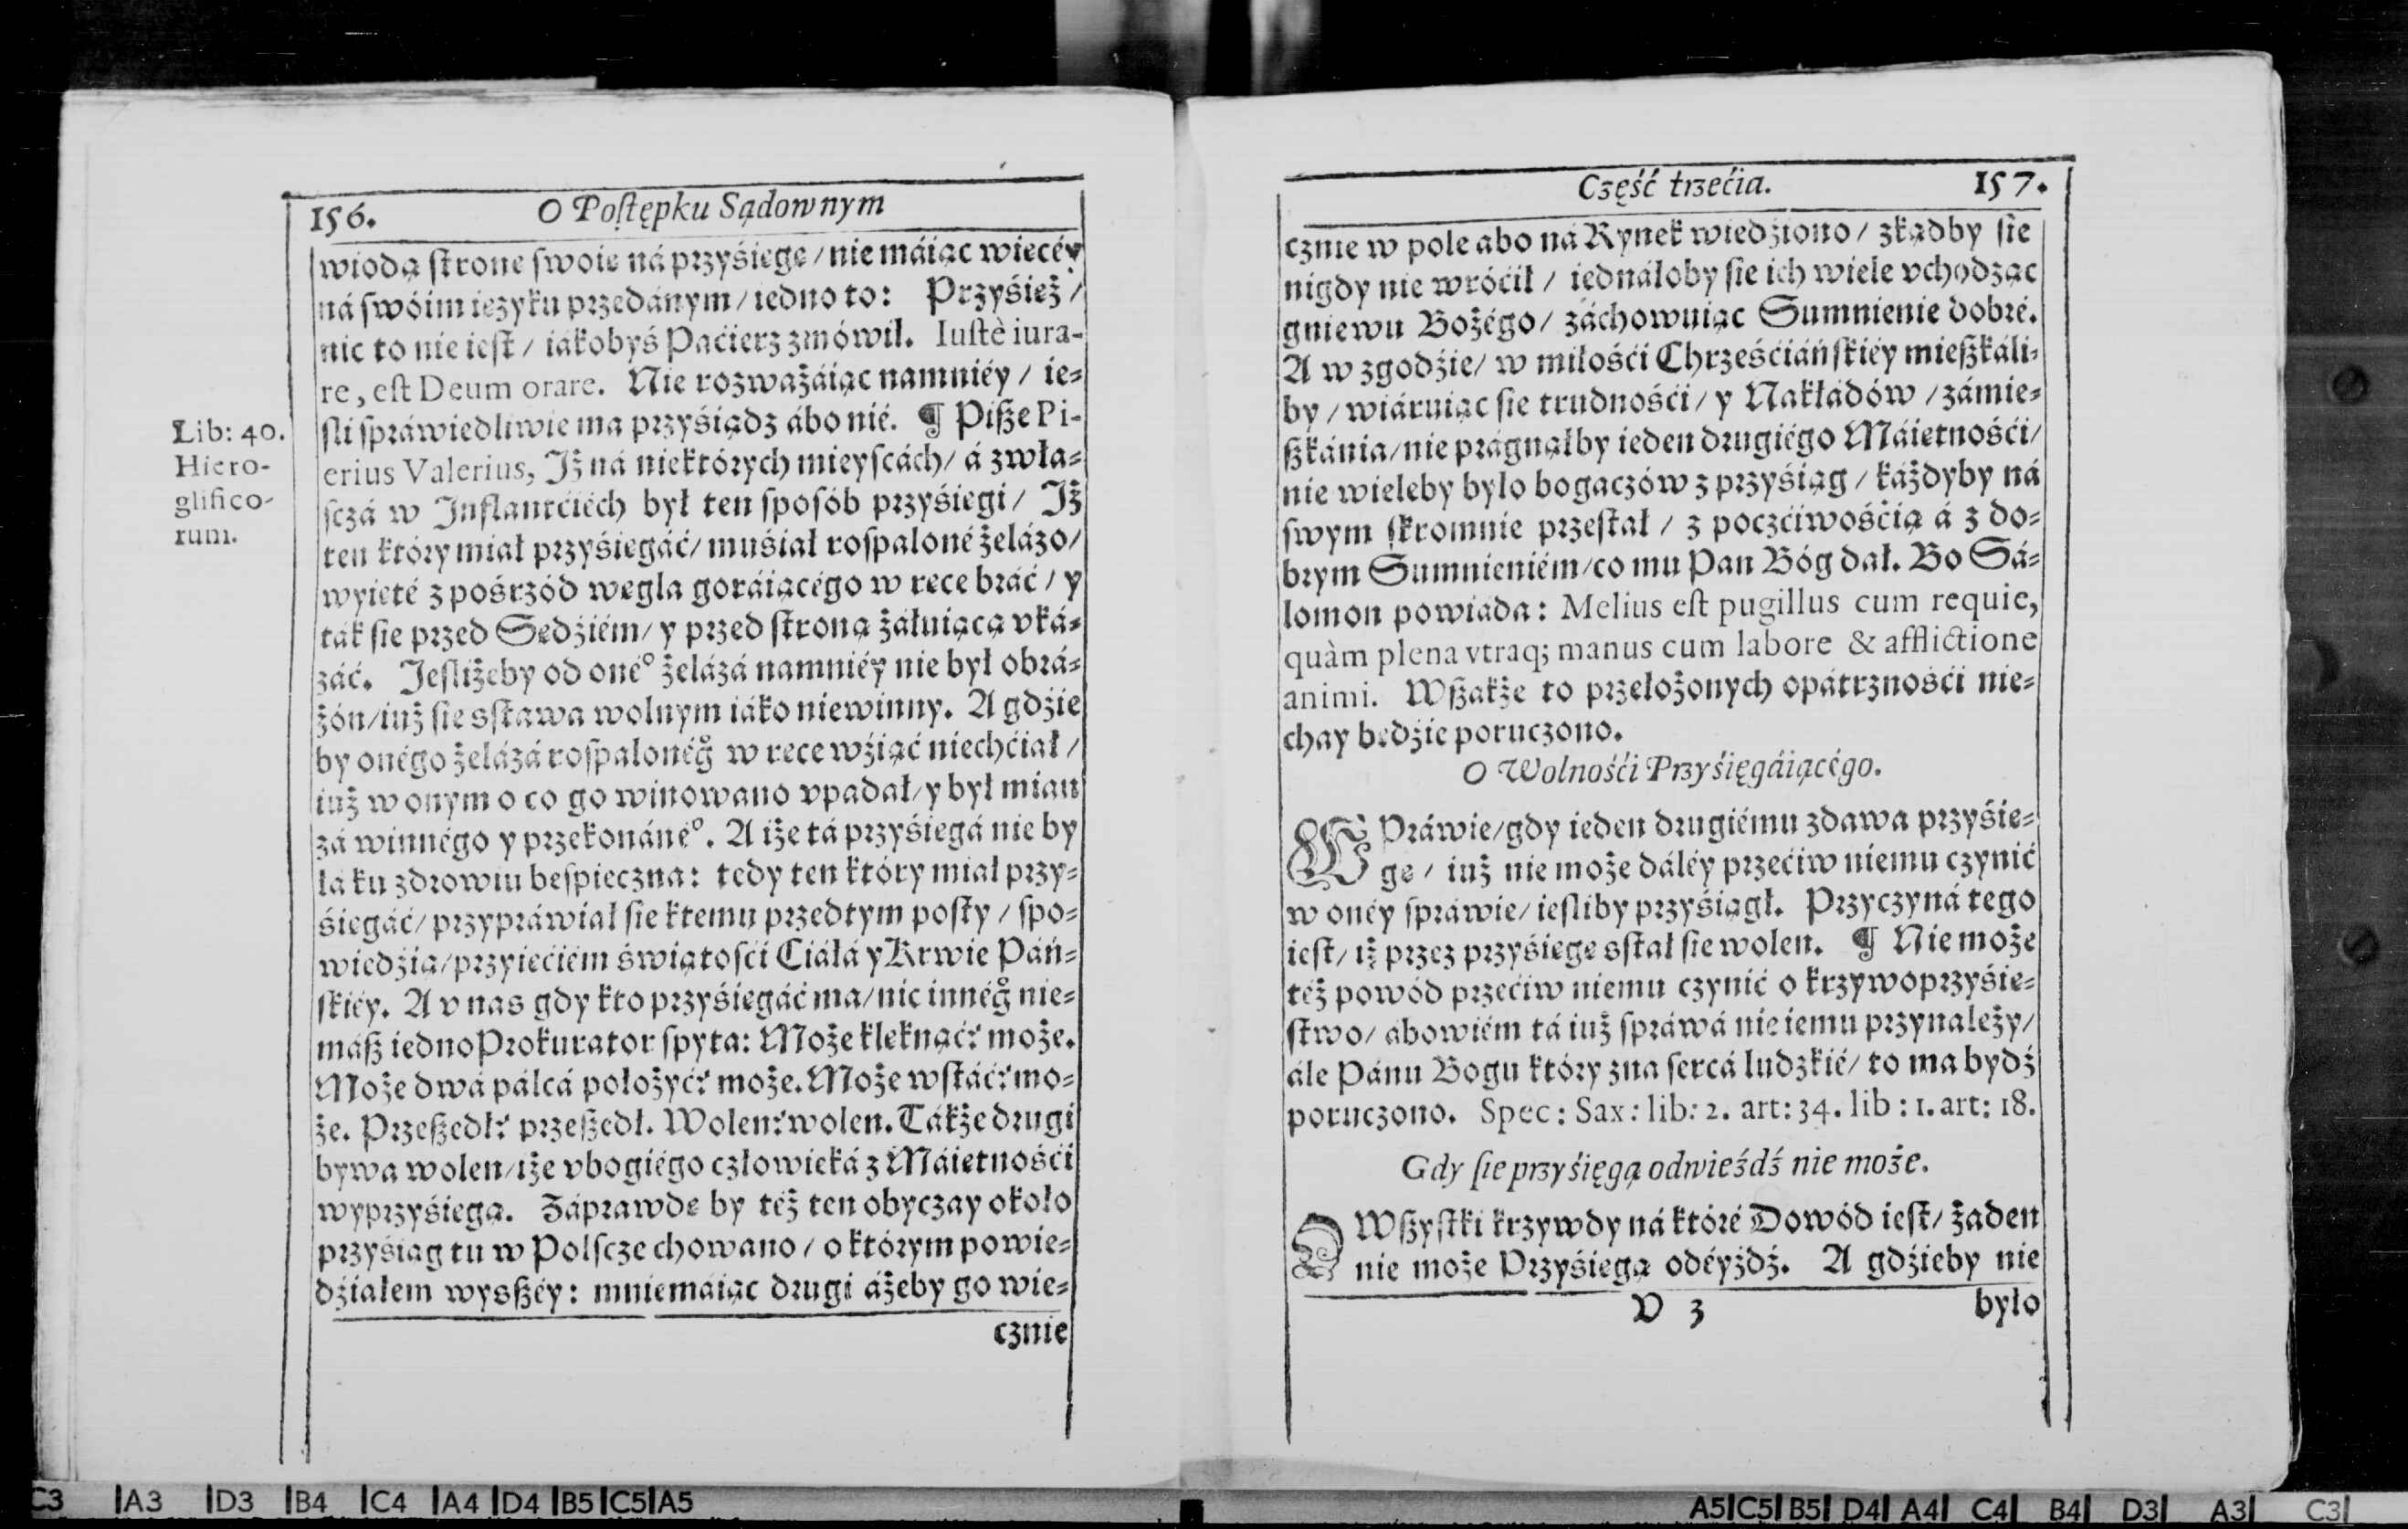 156. O Poſtępku Sądownym
wiodą ſtrone ſwoie ná przyśiege / nie máiąc wiecéy
ná ſwóim iezyku przedánym / iedno to: Przyśież /
nic to nie ieſt / iákobyś Paćierz zmówił. Iuſtè iura-
re, eſt Deum orare. Nie rozważáiąc namniéy / ie-
ſli ſpráwiedliwie ma przyśiądz ábo nié. ¶ Piſze Pi-
erius Valerius, Iż ná niektórych mieyſcách / á zwła-
ſczá w Inflantćiéch był ten ſpoſób przyśiegi / Iż
ten który miał przyśiegáć / muśiał roſpaloné żelázo /
wyieté z pośrzód wegla goráiącégo w rece bráć / y
ták ſie przed Sedźiém / y przed ſtroną żáłuiącą vká-
záć. Ieſliżeby od oné° żelázá namniéy nie był obrá-
żón / iuż ſie sſtawa wolnym iáko niewinny. A gdźie
by onégo żelázá roſpalonég° w rece wźiąć niechćiał /
iuż w onym o co go winowano vpadał / y był mian
zá winnégo y przekonáné°. A iże tá przyśiegá nie by
łá ku zdrowiu beſpieczna: tedy ten który miał przy-
śiegáć / przypráwiał ſie ktemu przedtym poſty / ſpo-
wiedźią / przyiećiém świątoſći Ciáłá y Krwie Páń-
ſkiéy. A v nas gdy kto przyśiegáć ma / nic innég° nie-
máſz iedno Prokurator ſpyta: Może kleknąć? może.
Może dwá pálcá położyć? może. Może wſtáć? mo-
że. Przeſzedł? przeſzedł. Wolen? wolen. Tákże drugi
bywa wolen / iże vbogiégo człowieká z Máietnośći
wyprzyśiega. Záprawde by téż ten obyczay około
przyśiąg tu w Polſcze chowano / o którym powie-
dźiałem wysſzéy: mniemáiąc drugi áżeby go wie-
cznie
Lib: 40.
Hiero-
glifico-
rum.
Część trzećia. 157.
cznie w pole abo ná Rynek wiedźiono / zkądby ſie
nigdy nie wróćił / iednáłoby ſie ich wiele vchodząc
gniewu Bożégo / záchowuiąc Sumnienie dobré.
A w zgodźie / w miłośći Chrześćiáńſkiéy mieſzkáli-
by / wiáruiąc ſie trudnośći / y Nakłádów / zámie-
ſzkánia / nie prágnąłby ieden drugiégo Máietnośći /
nie wieleby było bogaczów z przyśiąg / káżdyby ná
ſwym ſkromnie przeſtał / z poczćiwośćią á z do-
brym Sumnieniém / co mu Pan Bóg dał. Bo Sá-
lomon powiáda: Melius eſt pugillus cum requie,
quàm plena vtraq; manus cum labore & afflictione
animi. Wſzakże to przełożonych opátrznośći nie-
chay bedźie poruczono.
O Wolnośći Przyśięgáiącégo.
W Práwie / gdy ieden drugiému zdawa przyśie-
ge / iuż nie może dáléy przećiw niemu czynić
w onéy ſpráwie / ieſliby przyśiągł. Przyczyná tego
ieſt / iż przez przyśiege sſtał ſie wolen. ¶ Nie może
téż powód przećiw niemu czynić o krzywoprzyśie-
ſtwo / abowiém tá iuż ſpráwá nie iemu przynależy /
ále Pánu Bogu który zna ſercá ludzkié / to ma bydź
poruczono. Spec: Sax: lib: 2. art: 34. lib: 1. art: 18.
Gdy ſie przyśięgą odwieźdź nie może.
O Wſzyſtki krzywdy ná któré Dowód ieſt / żaden
nie może Przyśiegą odéyźdź. A gdźieby nie
V 3 było
C3 A3 D3 B4 C4 A4 D4 B5 C5 A5
A5 C5 B5 D4 A4 C4 B4 D3 A3 C3